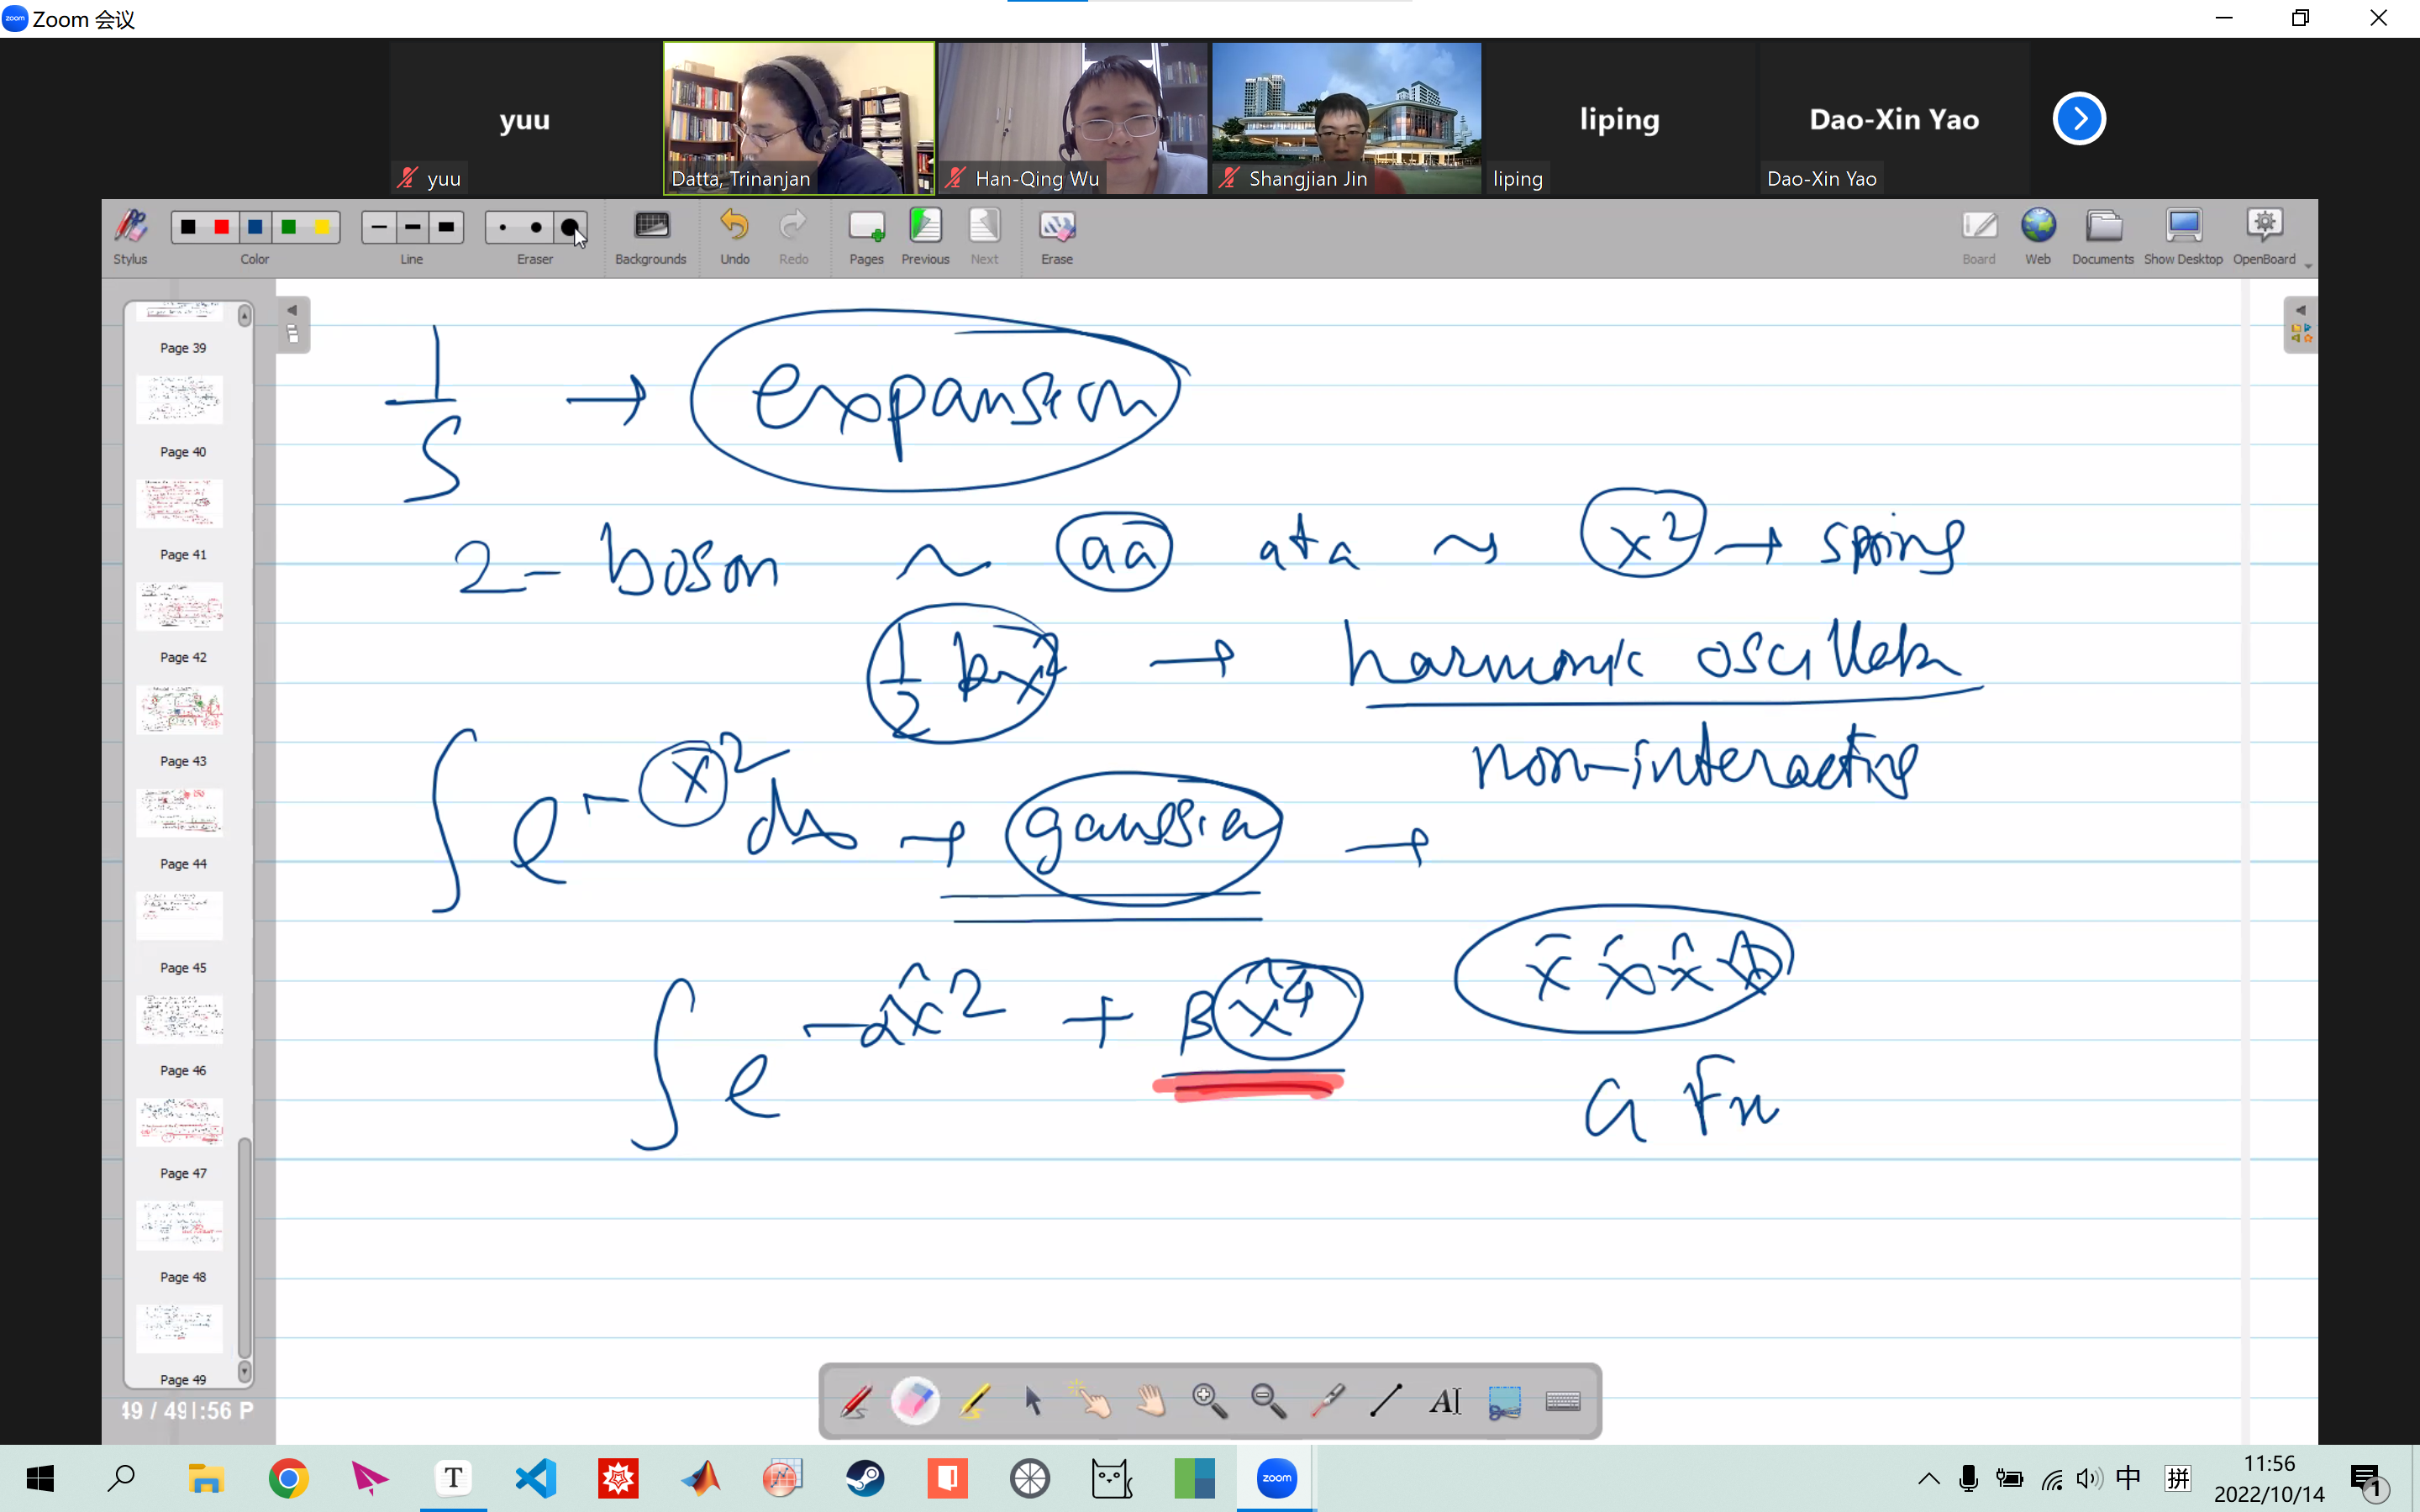 Zoom 会议
yuu
liping
Dao-Xin Yao
yuu
Datta, Trinanjan
Han-Qing Wu
Shangjian Jin
liping
Dao-Xin Yao
Stylus
Color
Line
Eraser
Backgrounds
Undo
Redo
Pages
Previous
Next
Erase
Board
Web
Documents
Show Desktop
OpenBoard
Page 39
Page 40
Page 41
Page 42
Page 43
Page 44
Page 45
Page 46
Page 47
Page 48
Page 49
1/S → expansion
2- boson ~ aa a†a ~ x² → spring
1/2 kx² → harmonic oscillator
non-interacting
∫ e^-x² dx → gaussian →
∫ e^-αx̂² + βx̂⁴
x̂ x̂ x̂ x̂
49 / 49
1:56 P
zoom
中
拼
11:56
2022/10/14
1